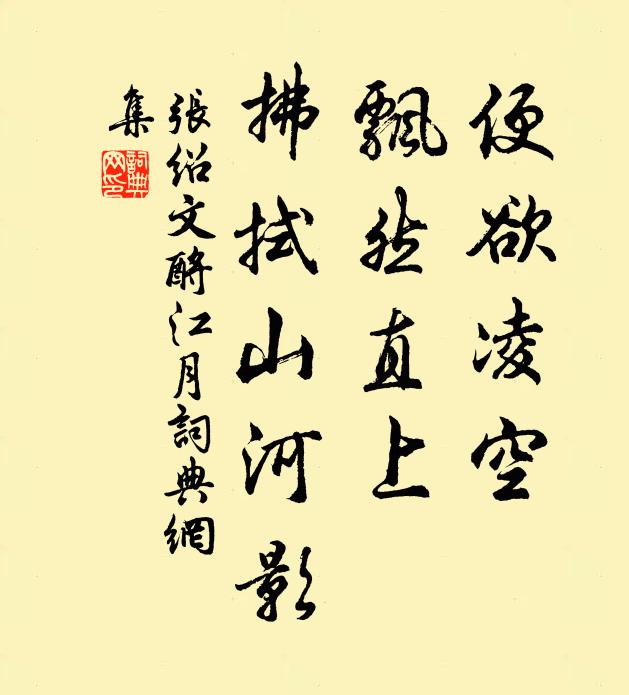 便欲凌空
飄然直上
拂拭山河影
張紹文酹江月詞典網
集
詞典網印